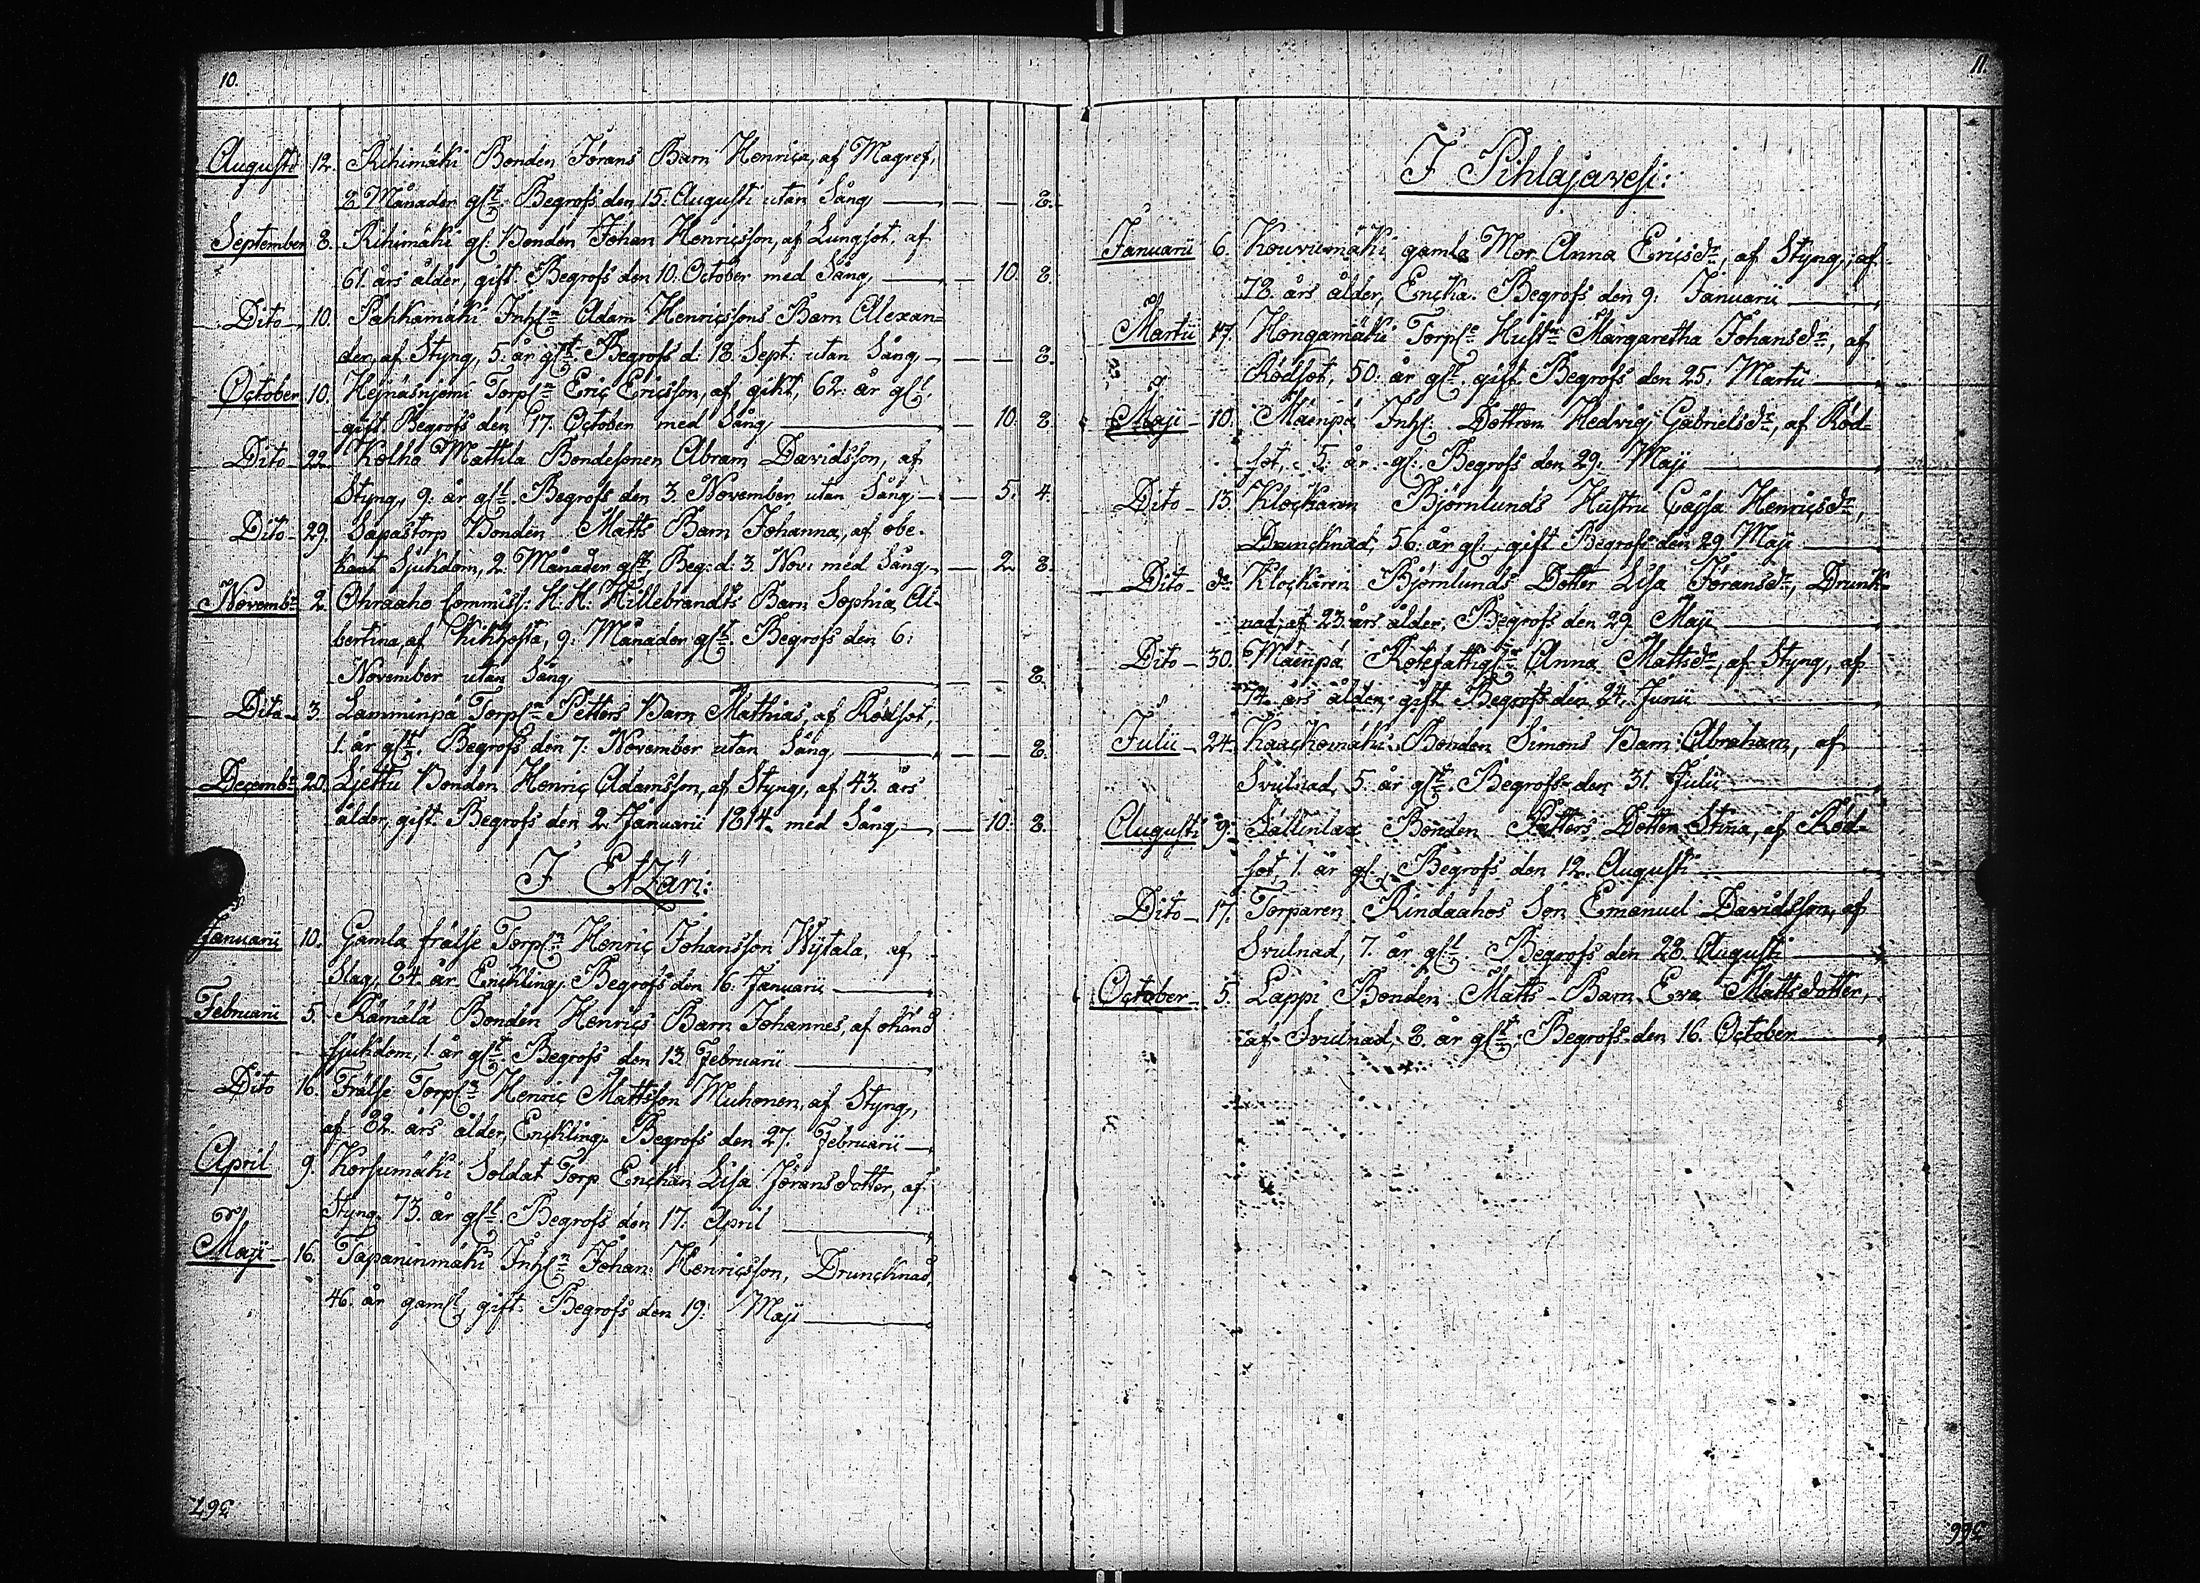 10.
Augusti 12. Rihimäki Bonden Jörans Barn Henrica, af Magref,
8 Månader glt. Begrofs den 15. Augusti utan Sång — — 8.
September 8. Rihimäki gl. Bonden Johan Henricsson, af Lungsot, af
61. års ålder, gift. Begrofs den 10. October med Sång — 10. 8.
Dito 10. Pahkamäki Inhsn Adam Henricssons Barn Alexan=
der, af Styng, 5. år glt. Begrofs d: 18. Sept: utan Sång — — 8.
October 10. Hejnäsnjemi Torpn Eric Ericsson, af gikt, 62. år gl.
gift. Begrofs den 17. October med Sång — 10. 8.
Dito 22. Kolho Mattila Bondesonen Abram Davidsson, af
Styng, 9. år glt. Begrofs den 3. November utan Sång — 5. 4.
Dito 29. Sapastorp Bonden Matts Barn Johanna, af obe-
kant Sjukdom, 2. Månader glt. Beg: d: 3. Nov: med Sång — 2. 8.
Novembr 2. Ohraaho Commiss: H. H: Hillebrandts Barn Sophia Al-
bertina, af Kikhosta, 9: Månader glt. Begrofs den 6:
November utan Sång, — — 8.
Dito 3. Lamminpä Torpn Petters Barn Mathias, af Rödsot,
1. år glt. Begrofs den 7: November utan Sång — — 8.
Decembr 20. Ljettu Bonden Henric Adamsson, af Styng, af 43. års
ålder, gift. Begrofs den 2. Januarii 1814. med Sång — 10. 8.
I Etzäri:
Januarii 10. Gamla frälse Torpn Henric Johansson Wÿtala, af
Slag, 84. år Enckling. Begrofs den 16. Januarii
Februarii 5. Rämälä Bonden Henrics Barn Johannes, af okänd
sjukdom, 1. år glt. Begrofs den 13. Februarii
Dito 16. Frälse Torpn Henric Mattsson Muhonen, af Styng,
af 82. års ålder, Enckling. Begrofs den 27. Februarii
April 9. Korsumäki Soldat Torp Enckan Lisa Jöransdotter, af
Styng, 73. år glt. Begrofs den 17. April
Maji 16. Tapaninmäki Inhn Johan Henricsson, Druncknad,
46. år gaml, gift. Begrofs den 19. Maji
367
11.
I Pihlajavesi:
Januarii 6. Kouvumäki gamla Mor Anna Ericsdr, af Styng, af
78. års ålder, Encka. Begrofs den 9: Januarii
Martii 17. Hongamäki Torps Hustr Margaretha Johansdr, af
Rödsot, 50. år glt. gift. Begrofs den 25. Martii
Maji 10. Mäenpä Inhs. Dottren Hedvig Gabrielsdr, af Röd=
sot, 5. år gl. Begrofs den 29: Maji
Dito 13. Klockaren Björnlunds Hustru Cajsa Henricsdr,
Druncknad, 56. år gl, gift. Begrofs den 29 Maji
Dito do Klockaren Björnlunds Dotter Lisa Jöransdr, Drunk=
nad, af 23. års ålder. Begrofs den 29 Maji
Dito 30. Mäenpä Rotefattign Anna Mattsdr, af Styng, af
74. års ålder, gift. Begrofs den 24. Junii
Julii 24. Kaackomäki Bonden Simons Barn Abraham, af
Svulnad, 5. år glt. Begrofs den 31. Julii
Augusti 9. Sällinlax Bonden Petters Dotter Stina, af Röd=
sot, 1. år gl. Begrofs den 12. Augusti
Dito 17. Torparen Rindaahos Son Emanuel Davidsson, af
Svulnad, 7. år glt. Begrofs den 28. Augusti
October 5. Lappi Bonden Matts Barn Eva Mattsdotter,
af Svulnad, 8. år glt. Begrofs den 16. October
366